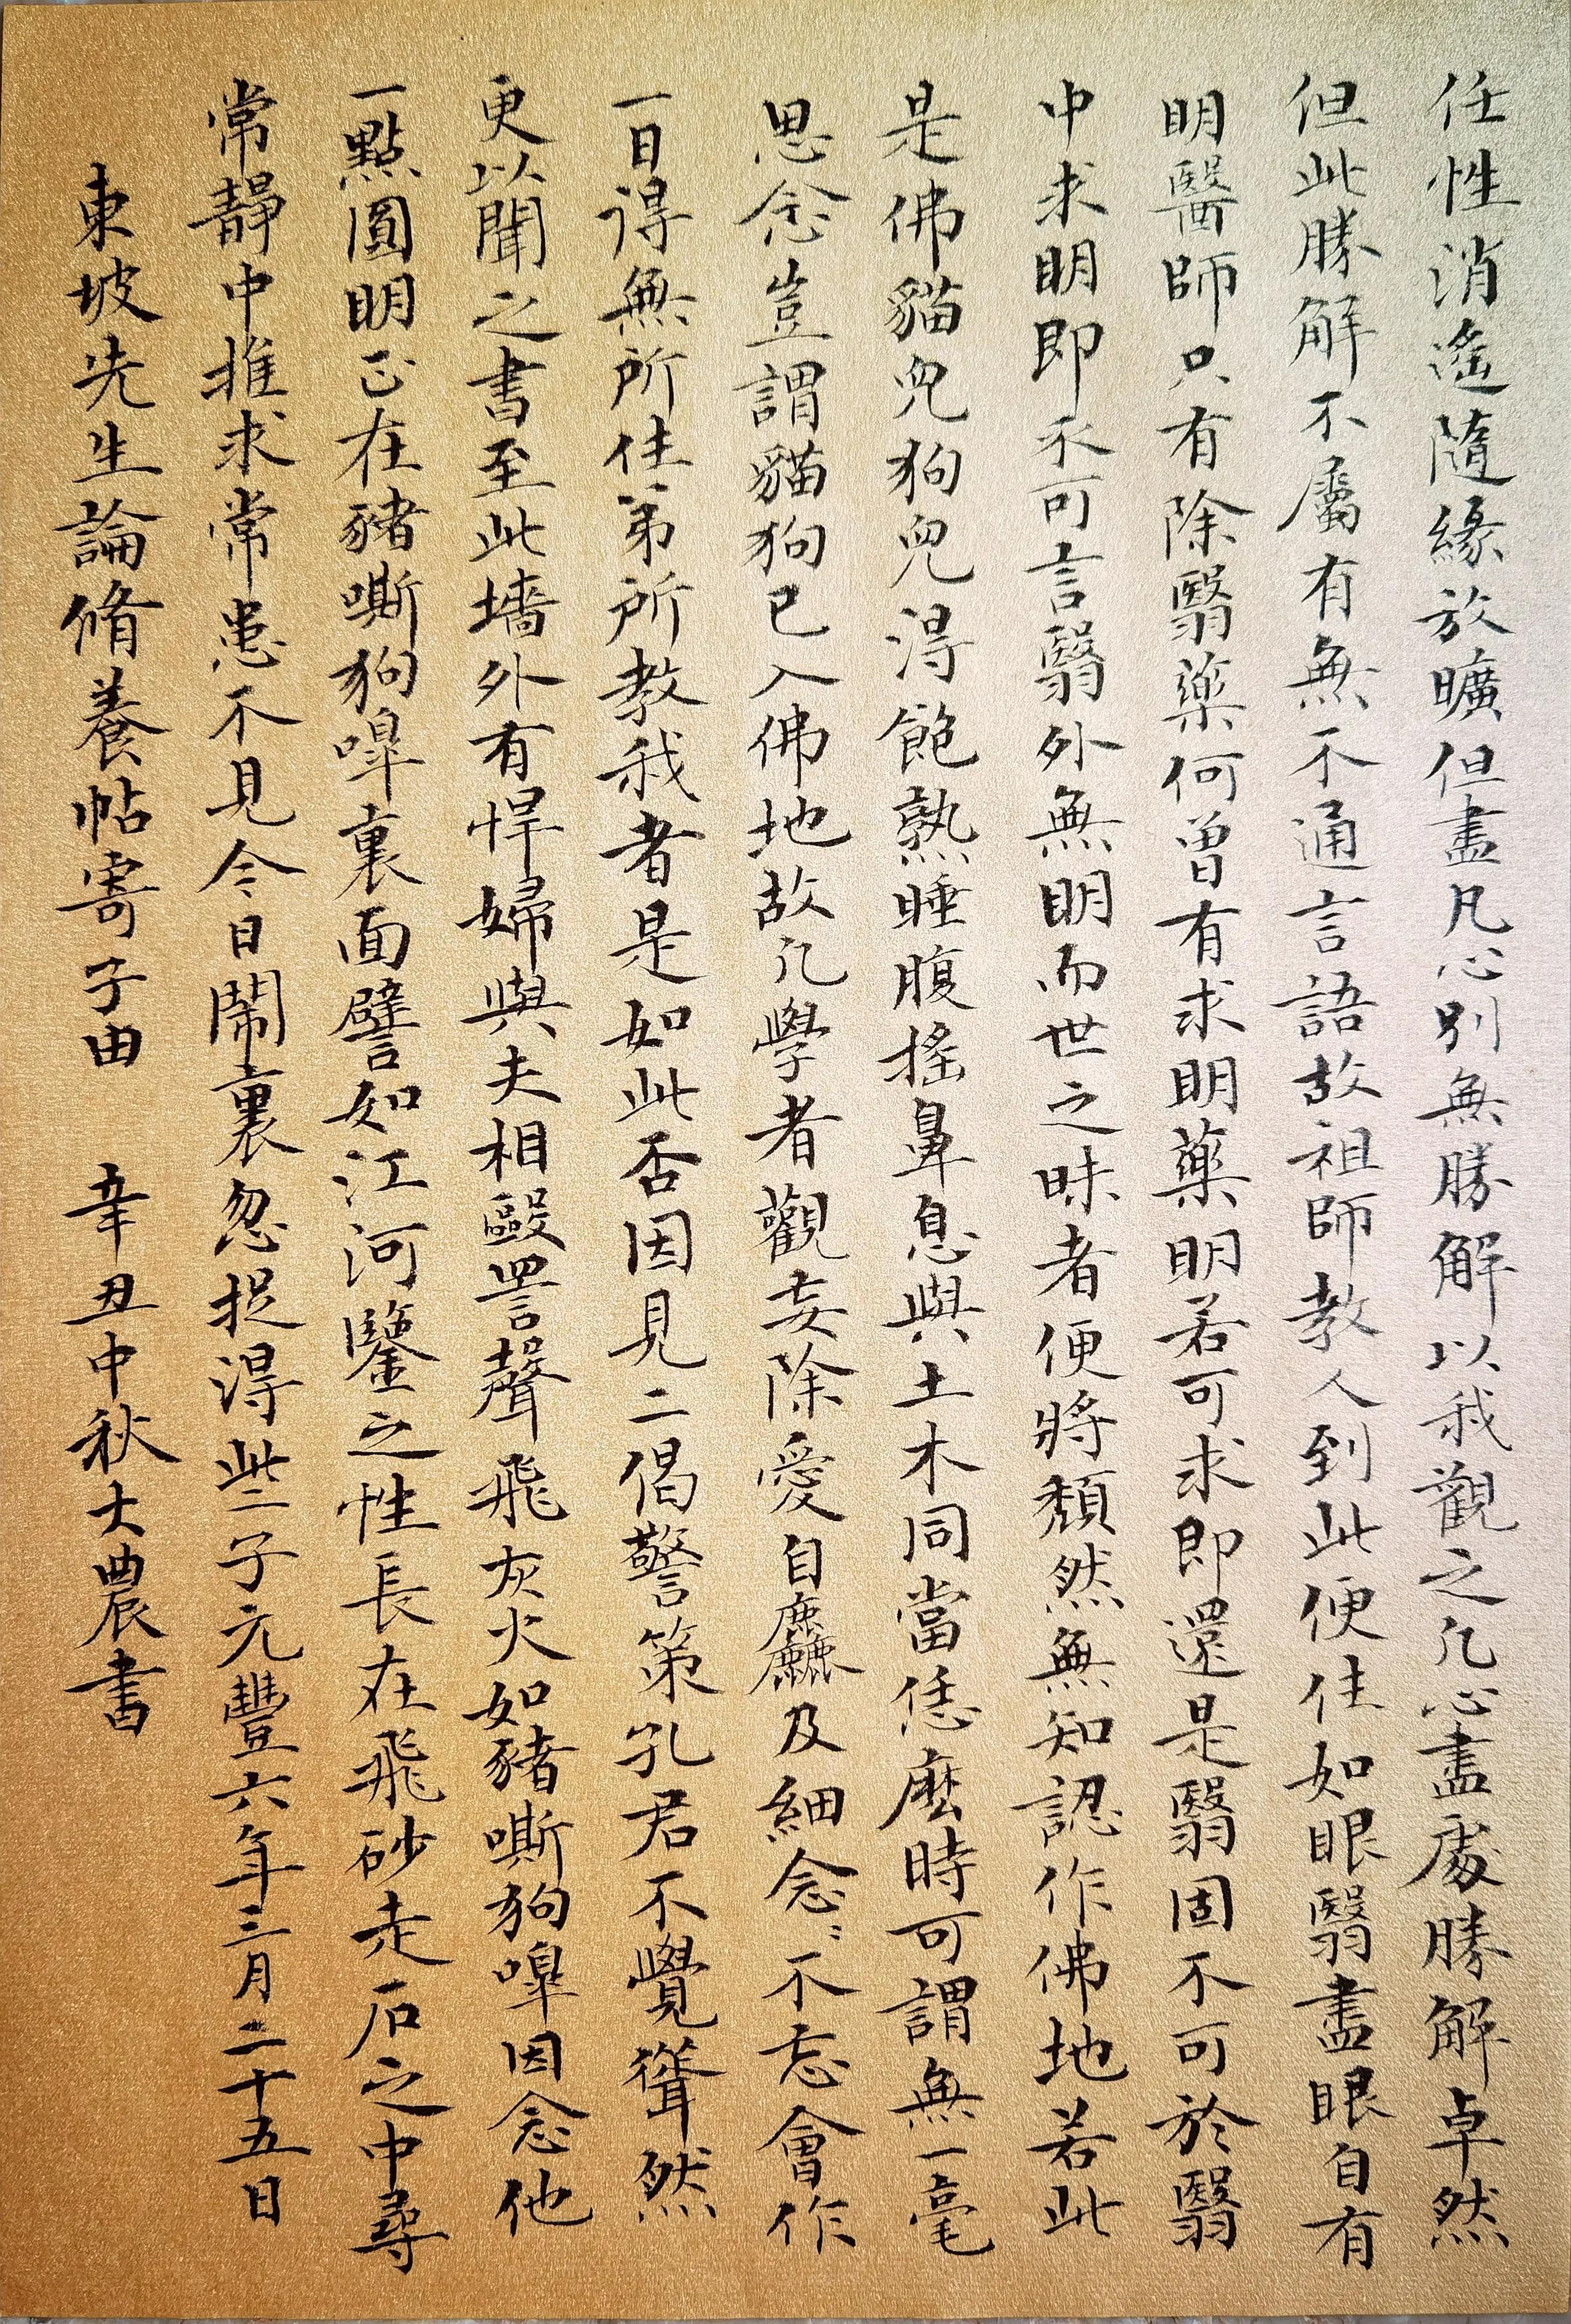 任性消遙隨緣放曠但盡凡心別無勝解以我觀之凡心盡處勝解卓然
但此勝解不屬有無不通言語故祖師教人到此便住如眼翳盡眼自有
明醫師只有除翳藥何曾有求明藥明若可求即還是翳固不可於翳
中求明即不可言翳外無明而世之昧者便將頹然無知認作佛地若此
是佛貓兒狗兒得飽熟睡腹搖鼻息與土木同當恁麼時可謂無一毫
思念豈謂貓狗已入佛地故凡學者觀妄除愛自麤及細念〻不忘會作
一日得無所住弟所教我者是如此否因見二偈警策孔君不覺聳然
更以聞之書至此墻外有悍婦與夫相毆詈聲飛灰火如豬嘶狗嘷因念他
一點圓明正在豬嘶狗嘷裏面譬如江河鑒之性長在飛砂走石之中尋
常靜中推求常患不見今日鬧裏忽捉得些子元豐六年三月二十五日
東坡先生論脩養帖寄子由 辛丑中秋大農書